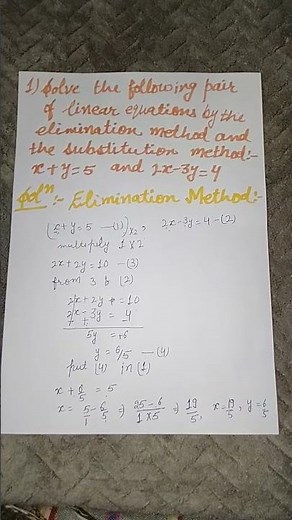 1) Solve the following pair
of linear equations by the
elimination method and
the substitution method:-
x+y=5 and 2x-3y=4
Solⁿ :- Elimination Method:-
(x+y=5 —(1))×2, 2x-3y=4-(2)
multiply 1×2
2x+2y=10 -(3)
from 3 & (2)
2x+2y=10
2x-3y=4
- + -
5y=+6
y=6/5 —(4)
put (4) in (1)
x+6/5=5
x=5/1-6/5 ⇒ 25-6/1×5 ⇒ 19/5, x=19/5, y=6/5